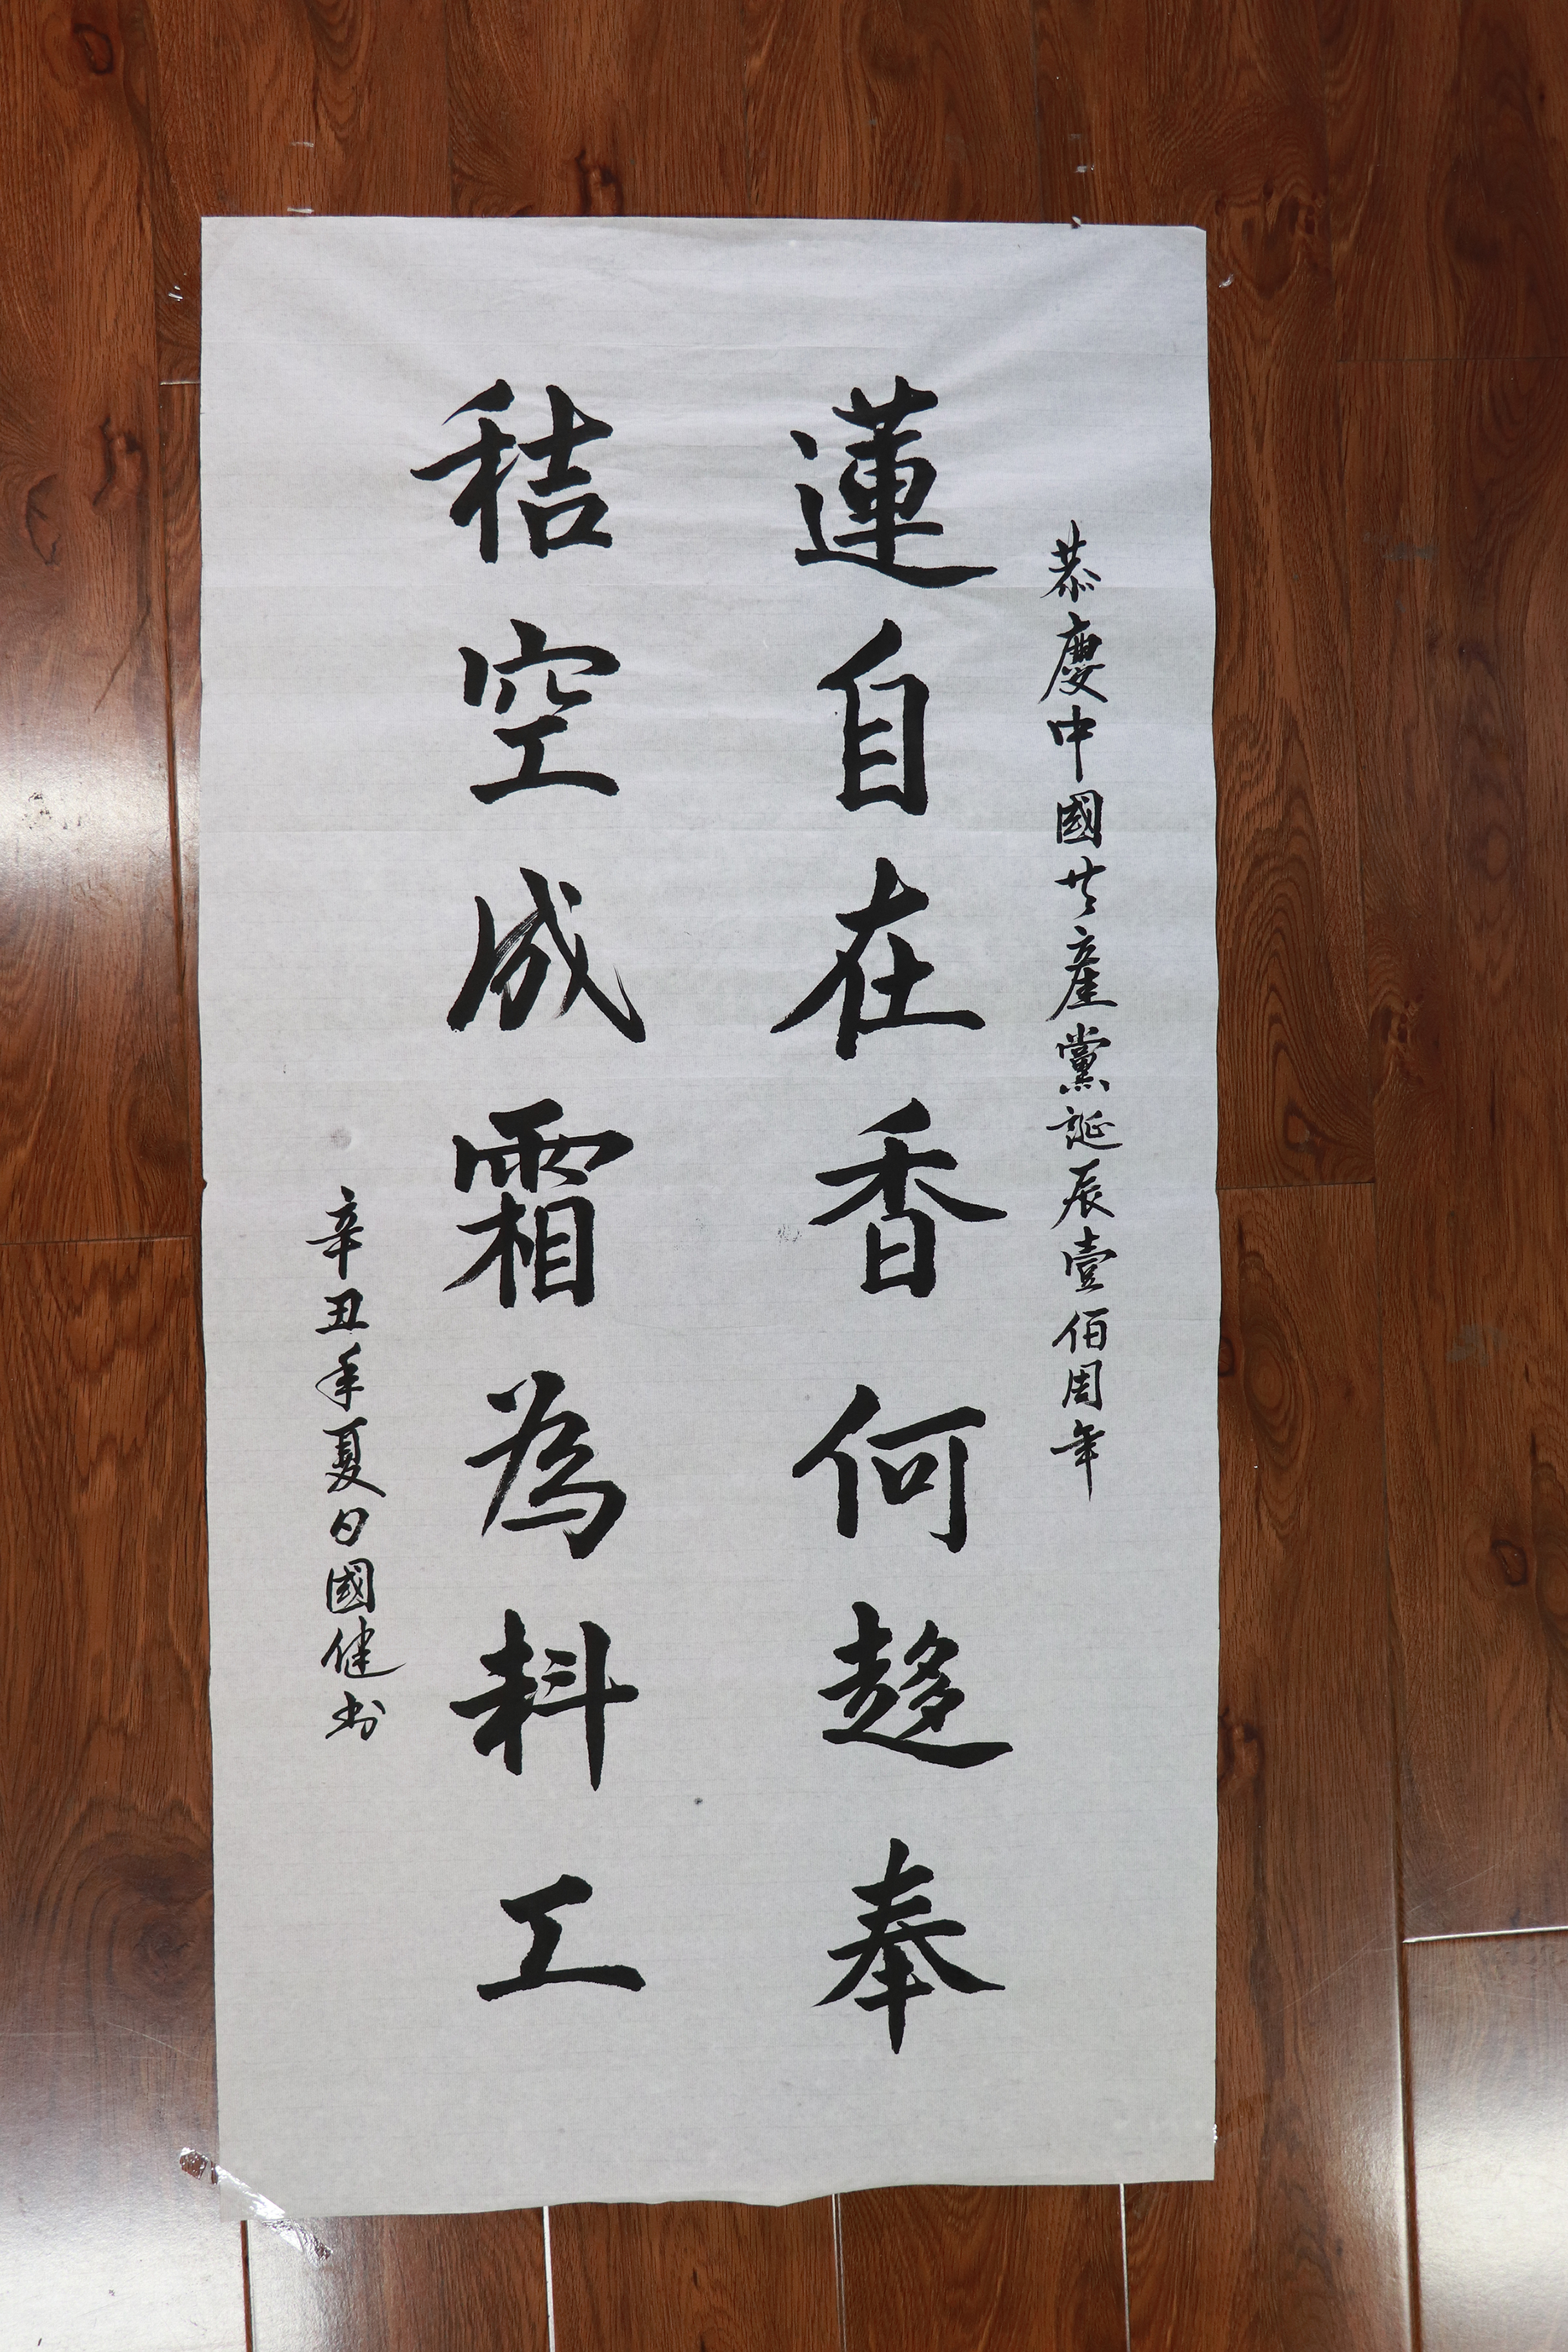 恭慶中國共產黨誕辰壹佰周年
蓮自在香何趍奉
秸空成霜為料工
辛丑年夏日國健书